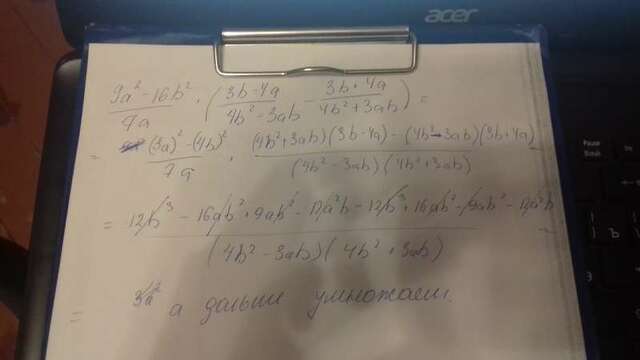 acer
(9a² - 16b²)/7a · ((3b - 4a)/(4b² - 3ab) - (3b + 4a)/(4b² + 3ab)) =
= ((3a)² - (4b)²)/7a · ((4b² + 3ab)(3b - 4a) - (4b² - 3ab)(3b + 4a))/((4b² - 3ab)(4b² + 3ab))
= (12b³ - 16ab² + 9ab² - 12a²b - 12b³ + 16ab² - 9ab² - 12a²b)/((4b² - 3ab)(4b² + 3ab)) =
= а дальше умножаем.
Pause
Break
Ъ